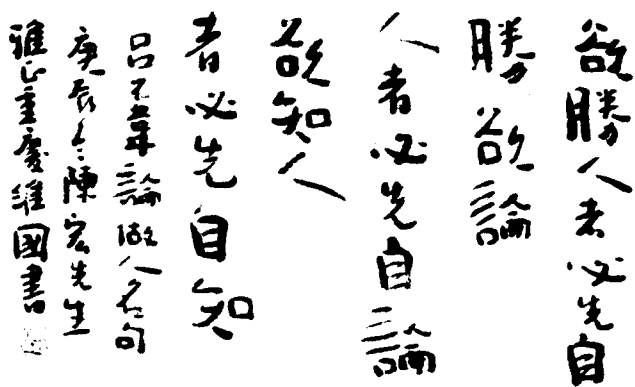 欲勝人者必先自
勝欲論
人者必先自論
欲知人
者必先自知
呂不韋論做人名句
庚辰冬陳宏先生
雅正重慶維國書